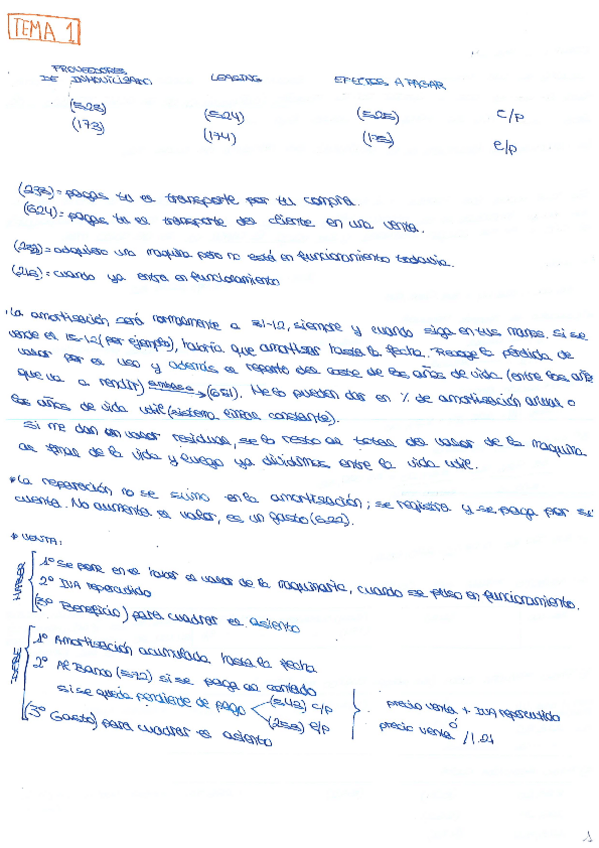 TEMA 1
PROVEEDORES DE INMOVILIZADO LEASING EFECTOS A PAGAR
(523) (524) (525) c/p
(173) (174) (175) e/p
(238)= pagas tu el transporte por tu compra.
(624)= pagas tu el transporte del cliente en una venta.
(233)= adquiero una maquina pero no está en funcionamiento todavia.
(213)= cuando ya entra en funcionamiento
La amortización será normalmente a 31-12, siempre y cuando siga en tus manos. si se
vende el 15-12 (por ejemplo), habría que amortizar hasta la fecha. Recoge la pérdida de
valor por el uso y además el reparto del coste de los años de vida (entre los años
que va a rendir) (681). Me lo pueden dar en % de amortización anual o
los años de vida util (sistema lineal constante).
Si me dan un valor residual, se lo resto al total del valor de la maquina
al final de la vida y luego ya dividimos entre la vida util.
*La reparación no se sumo en la amortización; se registra y se paga por su
cuenta. No aumenta el valor, es un gasto (622).
* VENTA:
HABER
1º Se pone en el haber el valor de la maquinaria, cuando se puso en funcionamiento.
2º IVA repercutido
(3º Beneficio) para cuadrar el asiento
DEBE
1º Amortización acumulada hasta la fecha
2º Al Banco (572) si se paga al contado
si se queda pendiente de pago (543) c/p
(253) e/p
precio venta + IVA repercutido
ó
precio venta / 1.21
(3º Gasto) para cuadrar el asiento
1